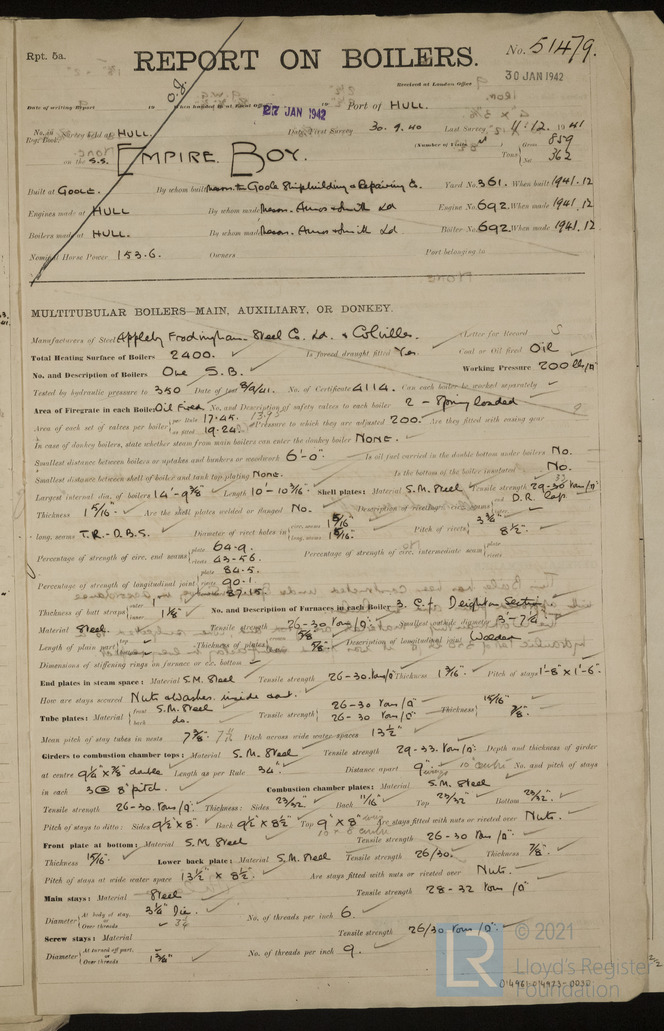 Rpt. 5a.
REPORT ON BOILERS.
No. 51479.
Received at London Office
30 JAN 1942
Date of writing Report 19 When handed in at Local Office 27 JAN 1942 19 Port of HULL.
No. in Reg. Book. Survey held at HULL. Date, First Survey 30.9.40 Last Survey 4.12. 1941
(Number of Visits
on the S.S. EMPIRE BOY. Tons Gross 859 Net 362
Built at GOOLE. By whom built Messrs. The Goole Shipbuilding & Repairing Co. Yard No. 361. When built 1941.12
Engines made at HULL By whom made Messrs. Amos & Smith Ld Engine No. 692. When made 1941.12
Boilers made at HULL. By whom made Messrs. Amos & Smith Ld Boiler No. 692 When made 1941.12.
Nominal Horse Power 153.6. Owners Port belonging to
MULTITUBULAR BOILERS—MAIN, AUXILIARY, OR DONKEY.
Manufacturers of Steel Appleby Frodingham Steel Co. Ld. & Colvilles. (Letter for Record S
Total Heating Surface of Boilers 2400. Is forced draught fitted Yes. Coal or Oil fired Oil
No. and Description of Boilers One S.B. Working Pressure 200 lb/□"
Tested by hydraulic pressure to 350 Date of test 8/9/41. No. of Certificate 4114. Can each boiler be worked separately
Area of Firegrate in each Boiler Oil Fired No. and Description of safety valves to each boiler 2 - Spring loaded
Area of each set of valves per boiler per Rule 17.45. 13.95 as fitted 19.24 Pressure to which they are adjusted 200. Are they fitted with easing gear
In case of donkey boilers, state whether steam from main boilers can enter the donkey boiler NONE.
Smallest distance between boilers or uptakes and bunkers or woodwork 6'-0" Is oil fuel carried in the double bottom under boilers No.
Smallest distance between shell of boiler and tank top plating None. Is the bottom of the boiler insulated No.
Largest internal dia. of boilers 14'-9 3/8" Length 10-10 3/16" Shell plates: Material S.M. Steel Tensile strength 29-33 Tons/□"
Thickness 1 5/16" Are the shell plates welded or flanged No. Description of riveting: circ. seams end D.R. Lap
long. seams T.R.-D.B.S. Diameter of rivet holes in circ. seams 1 5/16" long. seams 1 5/16" Pitch of rivets 3 3/4" 8 1/2".
Percentage of strength of circ. end seams plate 64.9. rivets 43.56 Percentage of strength of circ. intermediate seam plate rivets
Percentage of strength of longitudinal joint plate 84.5. rivets 90.1 combined 87.15
Thickness of butt straps outer 1" inner 1 1/8" No. and Description of Furnaces in each Boiler 3. C.f. Deighton Section
Material Steel Tensile strength 26-30 Tons/□" Smallest outside diameter 3-7 1/4"
Length of plain part Thickness of plates 5/8" 5/8" Description of longitudinal joint Welded
Dimensions of stiffening rings on furnace or c.c. bottom
End plates in steam space: Material S.M. Steel Tensile strength 26-30 Tons/□" Thickness 1 3/16" Pitch of stays 1'-8" x 1'-6".
How are stays secured Nuts & Washers inside & out.
Tube plates: Material front S.M. Steel back do. Tensile strength 26-30 Tons/□" 26-30 Tons/□" Thickness 15/16" 7/8".
Mean pitch of stay tubes in nests 7 7/8" Pitch across wide water spaces 13 1/2"
Girders to combustion chamber tops: Material S.M. Steel Tensile strength 29-33. Tons/□". Depth and thickness of girder
at centre 9 1/4" x 7/8" double Length as per Rule 34". Distance apart 9" No. and pitch of stays
in each 3 @ 8" pitch. Combustion chamber plates: Material S.M. Steel
Tensile strength 26-30 Tons/□" Thickness: Sides 23/32" Back 11/16" Top 23/32" Bottom 23/32".
Pitch of stays to ditto: Sides 9 1/2" x 8". Back 9 1/2" x 8 1/2" Top 9" x 8" Are stays fitted with nuts or riveted over Nuts.
Front plate at bottom: Material S.M Steel Tensile strength 26-30 Tons/□".
Thickness 15/16" Lower back plate: Material S.M. Steel Tensile strength 26/30. Thickness 7/8".
Pitch of stays at wide water space 13 1/2" x 8 1/2". Are stays fitted with nuts or riveted over Nuts.
Main stays: Material Steel Tensile strength 28-32 Tons/□"
Diameter At body of stay, or Over threads 3 1/4" Dia. No. of threads per inch 6.
Screw stays: Material Tensile strength 26/30 Tons/□".
Diameter At turned off part, or Over threads 1 3/4" No. of threads per inch 9.
LR
© 2021
Lloyd's Register
Foundation
014961-014973-0030